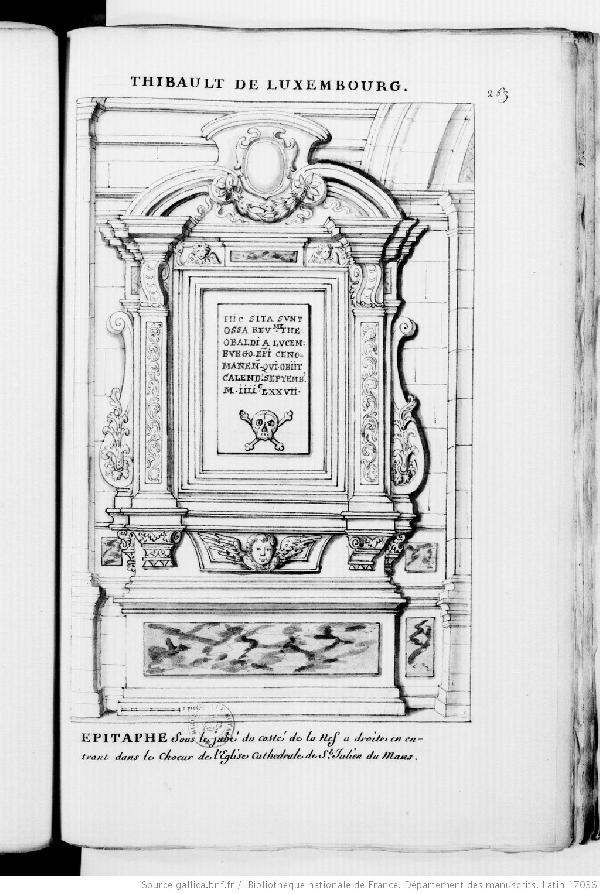 THIBAULT DE LUXEMBOURG.
263
HIC SITA SUNT
OSSA REVᴹᴵ THE
OBALDI A LUCEM:
BURGO. EP̄I CENO-
MANEN̄. QVI. OBIIT
CALEND: SEPTEMB.
M. IIIIᶜ LXXVII.
EPITAPHE Sous le jubé du costé de la Nef a droite en en-
trant dans le Choeur de l'Eglise Cathedrale de Sᵗ Julien du Mans.
Source gallica.bnf.fr / Bibliothèque nationale de France. Département des manuscrits. Latin 17036